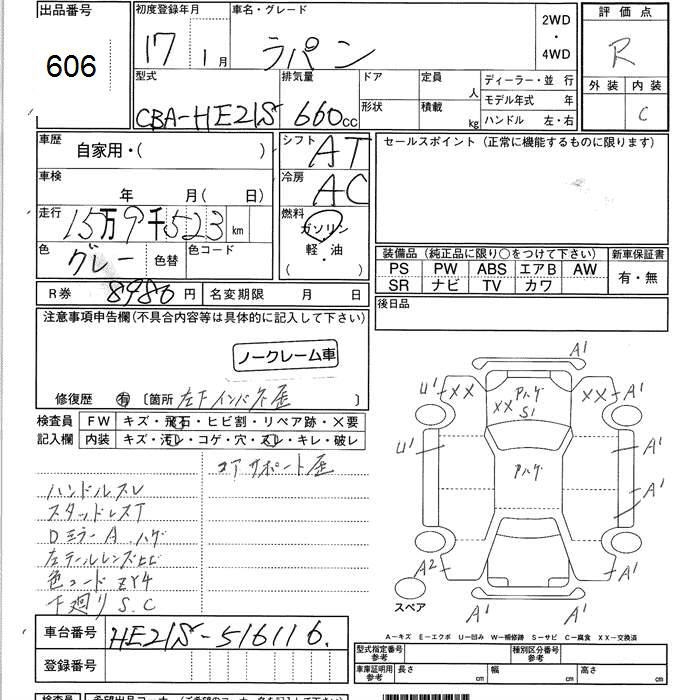 出品番号
606
初度登録年月
17 年 1 月
車名・グレード
ラパン
2WD
・
4WD
評価点
R
外装 内装
C
型式
CBA-HE21S
排気量
660 cc
ドア
形状
定員 人
積載 kg
ディーラー・並 行
モデル年式 年
ハンドル 左・右
車歴
自家用・( )
車検
年 月( 日)
走行
15万9千523 km
色
グレー
色替
色コード
R券 8980 円
名変期限 月 日
シフト
AT
冷房
AC
燃料
ガソリン
軽・油
( )
セールスポイント (正常に機能するものに限ります)
装備品 (純正品に限り○をつけて下さい)
PS PW ABS エアB AW
SR ナビ TV カワ
新車保証書
有・無
後日品
注意事項申告欄(不具合内容等は具体的に記入して下さい)
ノークレーム車
修復歴 有 〔箇所 左下インパクト歪 〕
検査員
記入欄
FW キズ・飛石・ヒビ割・リペア跡・×要
内装 キズ・汚レ・コゲ・穴・スレ・キレ・破レ
コアサポート歪
ハンドルスレ
スタッドレスT
Dミラー A.ハゲ
左テールレンズヒビ
色コード ZY4
下廻り S.C
A'
U' XX
Aハゲ
XX S1
XX A'
U'
A'
Aハゲ
A'
A'
A2
A'
A'
A'
スペア
A-キズ E-エクボ U-凹み W-補修跡 S-サビ C-腐食 XX-交換済
車台番号
HE21S-516116.
登録番号
型式指定番号
参考
種別区分番号
参考
車庫証明用
参考
長さ cm
幅 cm
高さ cm